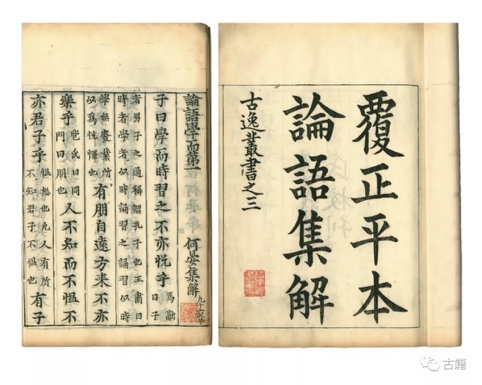 覆正平本
論語集解
古逸叢書之三
論語學而第一 何晏集解 凡十六章
子曰學而時習之不亦悅乎 馬融曰子
者男子之通稱謂孔子也王肅曰
時者學者以時誦習之誦習以時
學無廢業所以為悅懌也 有朋自遠方來不亦
樂乎 苞氏曰同門曰朋也 人不知而不慍不
亦君子乎 慍怒也凡人有所不知君子不慍也 有子
古籍